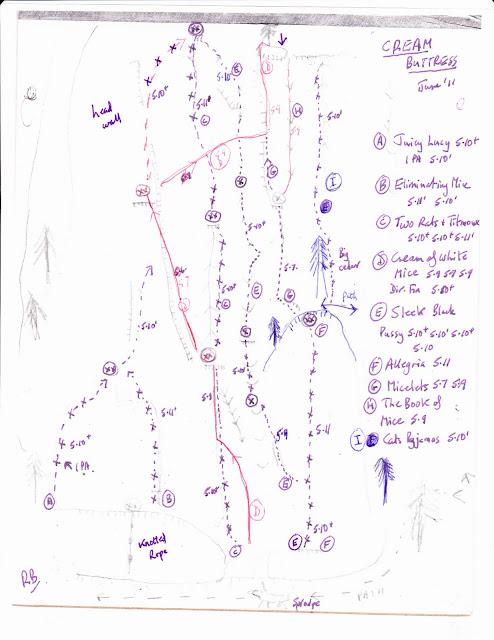 CREAM
BUTTRESS
June '11
head
wall
A Juicy Lucy 5.10+
1 PA 5.10'
B Eliminating Mice
5.11' 5.10'
C Two Rats + Titmouse
5.10+ 5.10+ 5.11'
D Cream of White
Mice 5.9 5.7 5.9
Dir. Fin 5.10+
E Sleek Black
Pussy 5.10+ 5.10' 5.10+
5.10
F Allegria 5.11
G Micelets 5.7 5.9
H The Book of
Mice 5.9
I Cats Pyjamas 5.10'
5.10+
5.10'
5.11'
C
E
D
5.9
H
5.9
G
5.10'
I
E
D
5.9
Big
cedar
path
5.10+
5.7
G
F
5.10+
C
E
D
5.7
5.10'
5.8
5.10'
5.9
5.11
5.11'
5.10+
1 PA
A
B
5.10+
D
5.10+
C
E
F
Knotted
Rope
RB
PATH